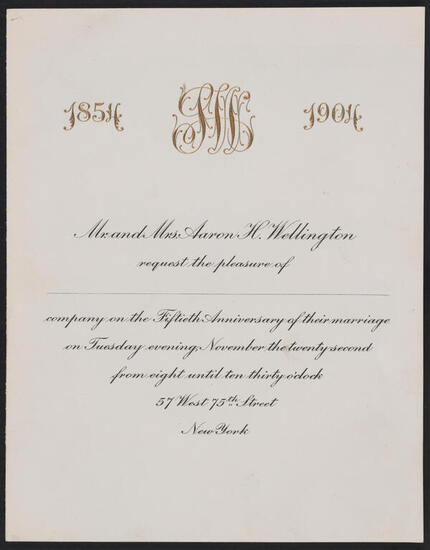 1854 1904
Mr. and Mrs. Aaron H. Wellington
request the pleasure of
company on the Fiftieth Anniversary of their marriage
on Tuesday evening, November the twenty second
from eight until ten thirty o'clock
57 West 75th Street
New York